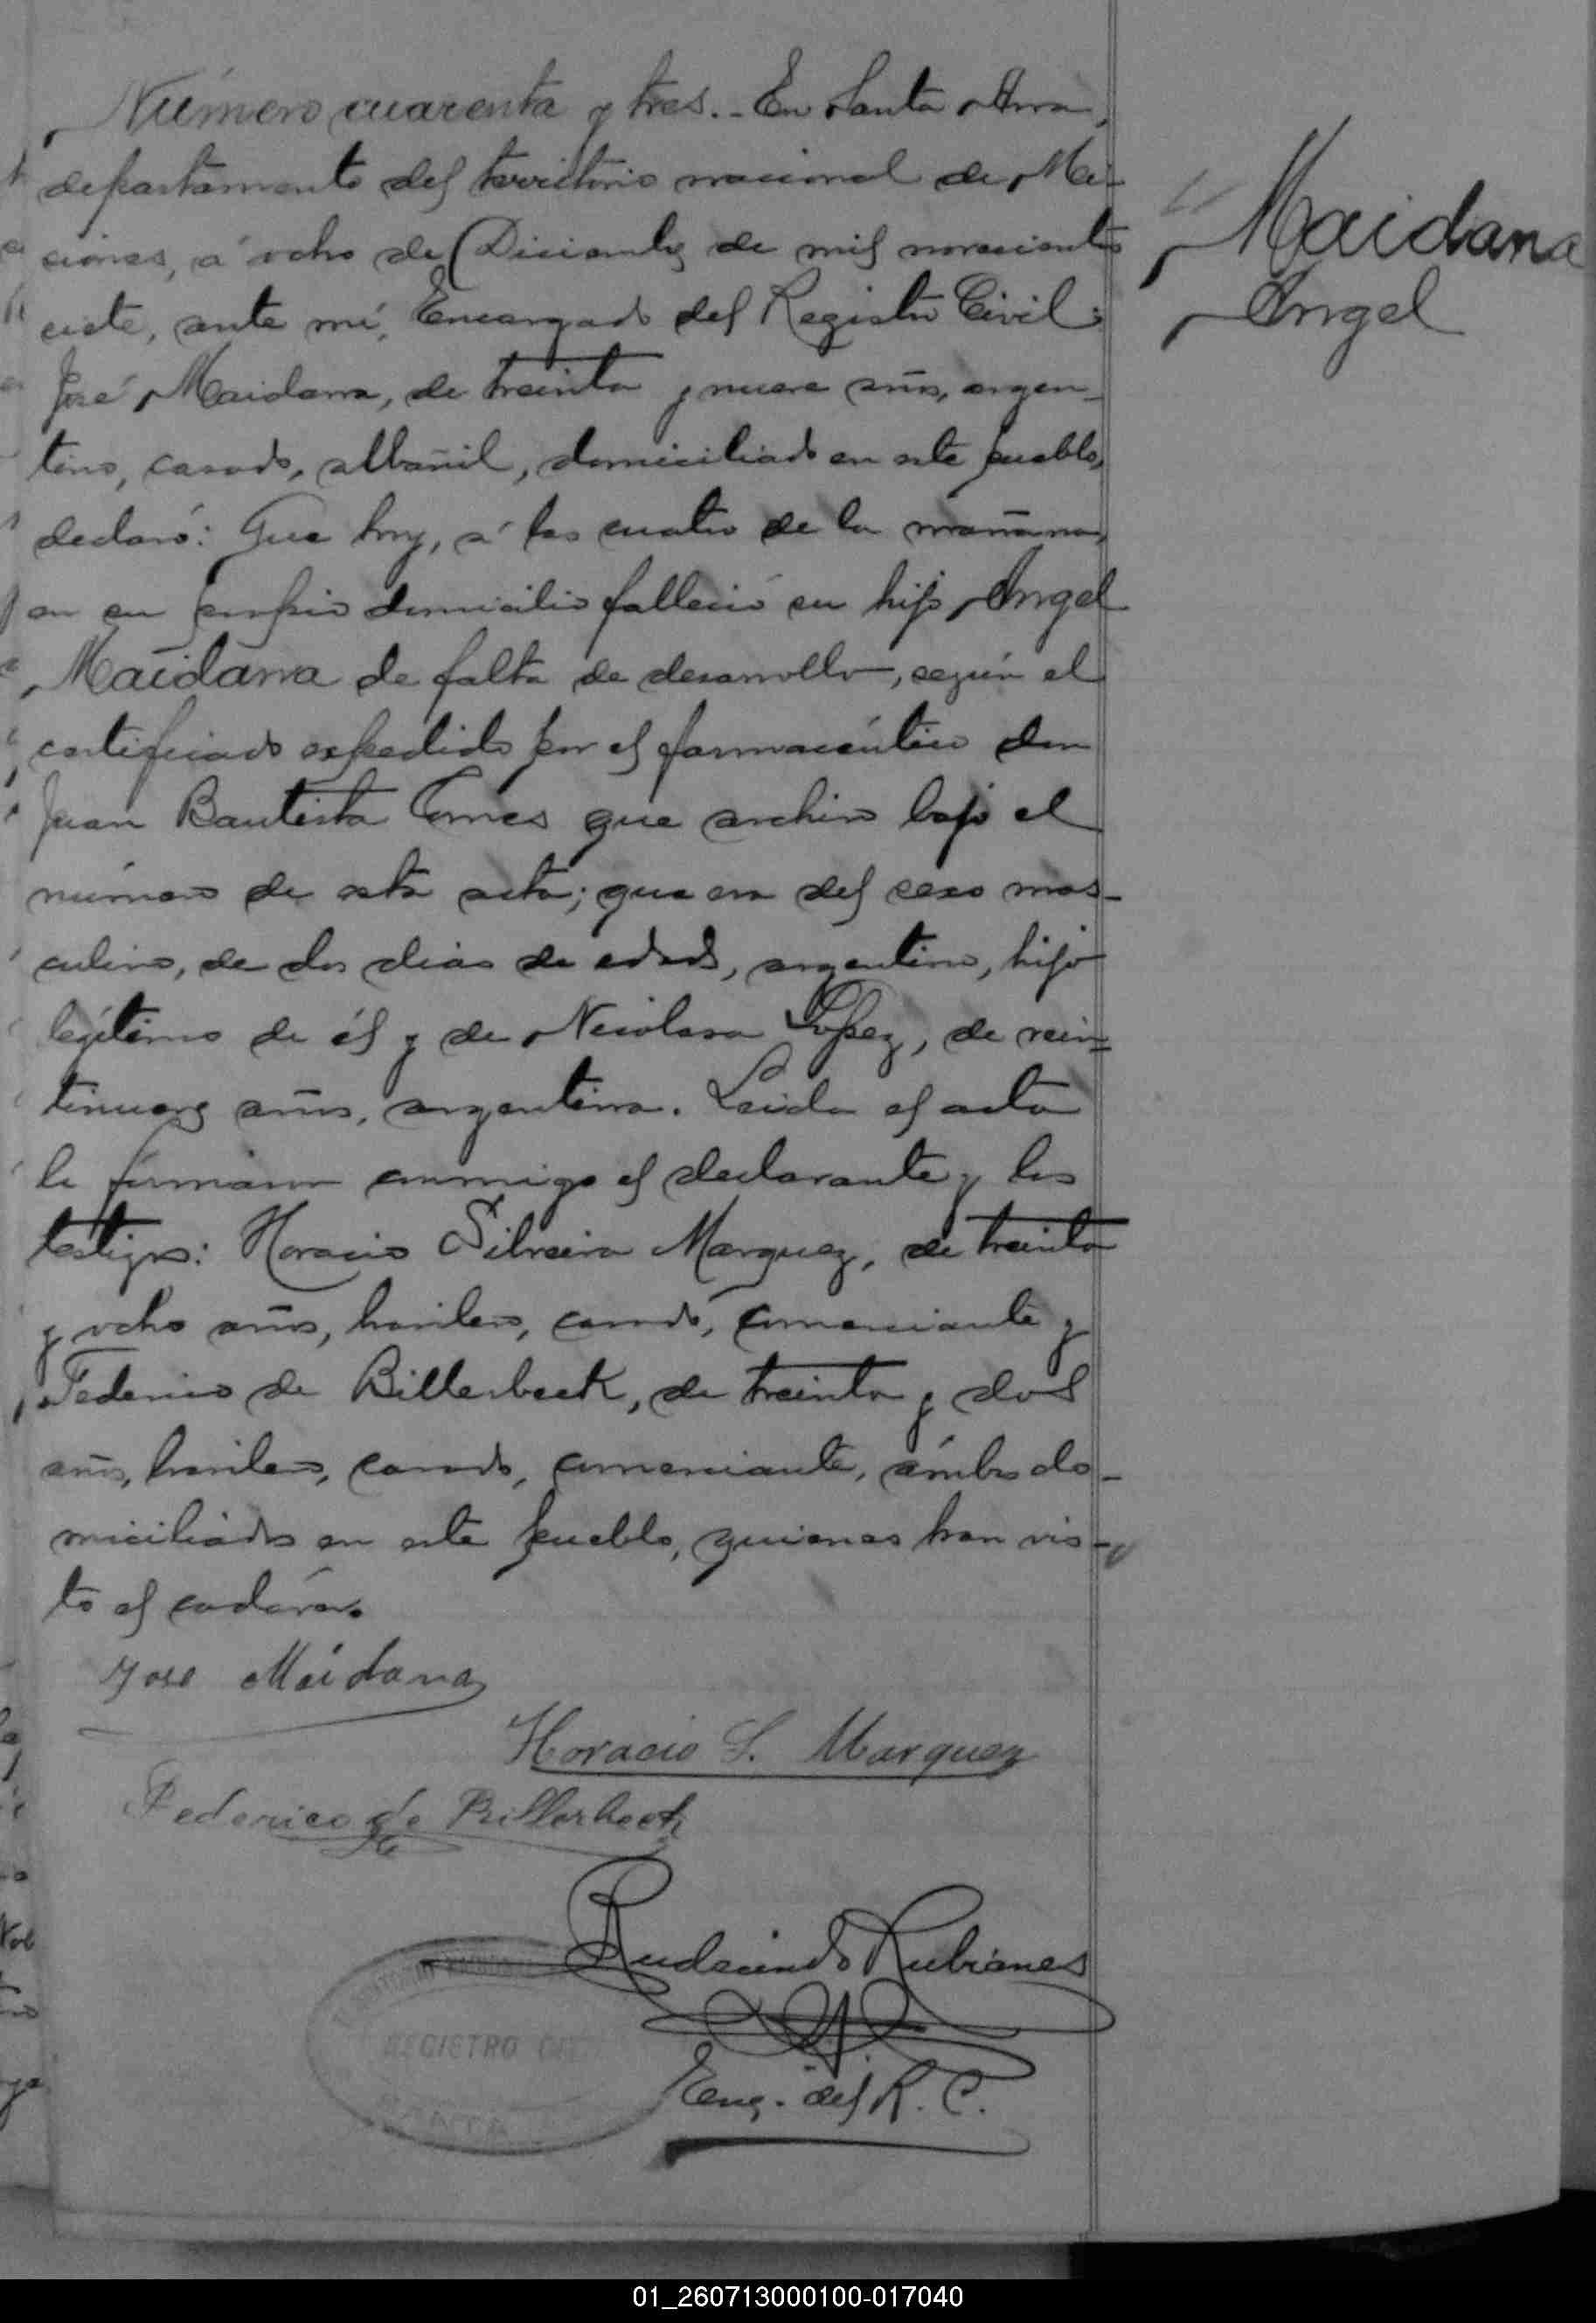 Número cuarenta y tres.- En Santa Ana,
departamento del territorio nacional de Mi-
siones, a ocho de Diciembre de mil novecientos
siete, ante mí, Encargado del Registro Civil:
José Maidana, de treinta y nueve años, argen-
tino, casado, albañil, domiciliado en este pueblo,
declaró: Que hoy, a las cuatro de la mañana,
en su propio domicilio falleció su hijo Angel
Maidana de falta de desarrollo, según el
certificado expedido por el farmacéutico don
Juan Bautista que archivo bajo el
número de esta acta; que era del sexo mas-
culino, de dos dias de edad, argentino, hijo
legítimo de él y de Nicolasa López, de vein-
tinueve años, argentina. Leida el acta
la firmaron conmigo el declarante y los
testigos: Horacio Silveira Marquez, de treinta
y ocho años, brasilero, casado, comerciante y
Federico de Billerbeck, de treinta y dos
años, brasilero, casado, comerciante, ámbos do-
miciliados en este pueblo, quienes han vis-
to el cadáver.
Jose Maidana
Horacio S. Marquez
Federico de Billerbeck
Rudecindo Rubianes
Enc. del R. C.
REGISTRO
SANTA
Maidana
Angel
01_260713000100-017040